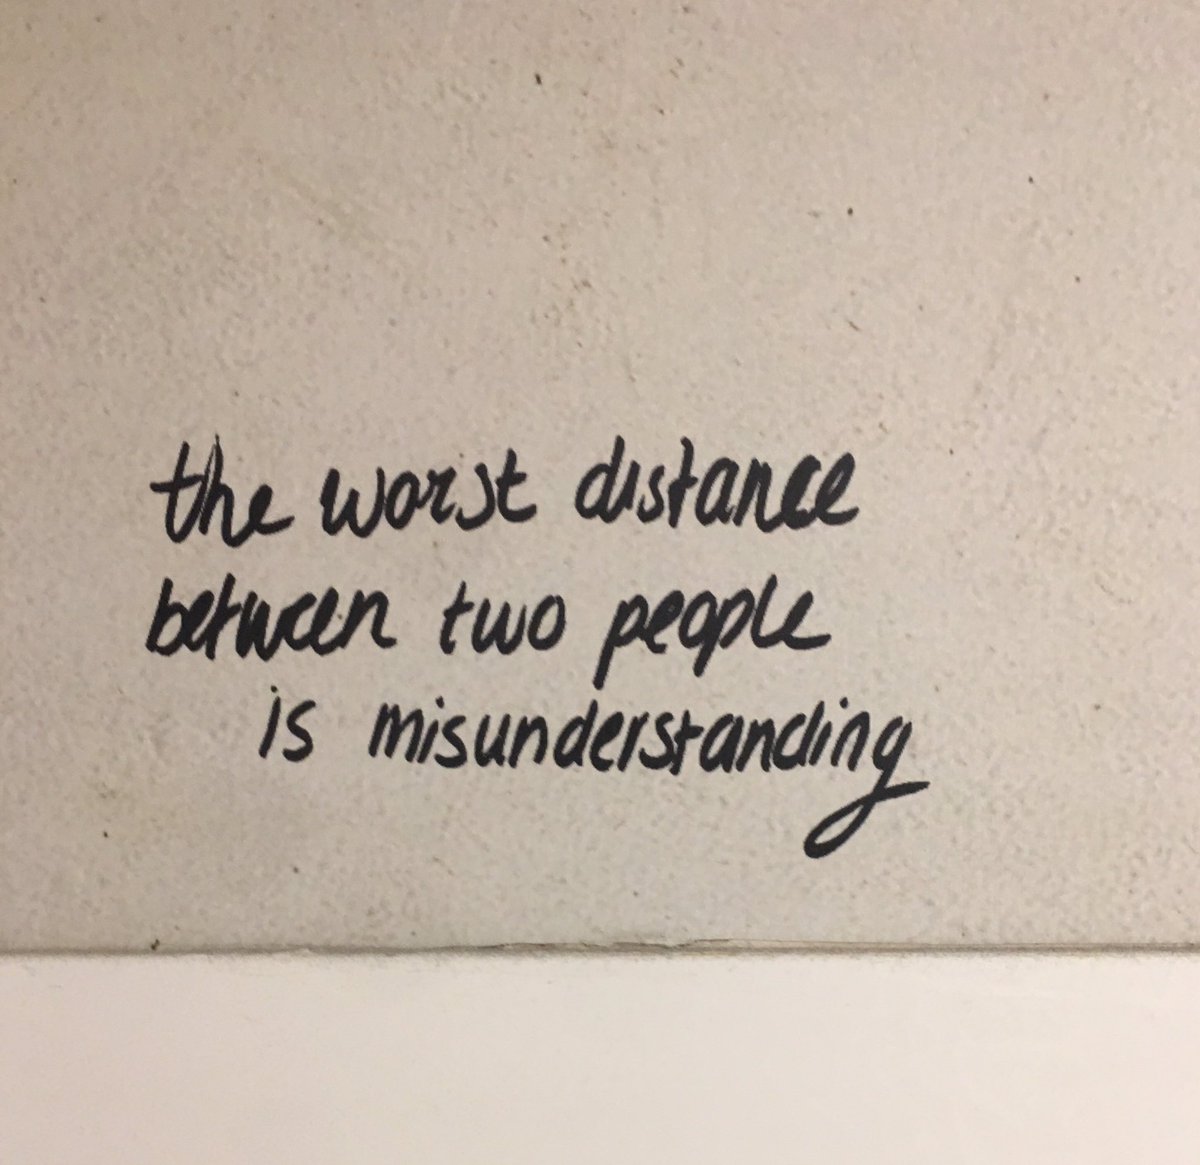 the worst distance
between two people
is misunderstanding